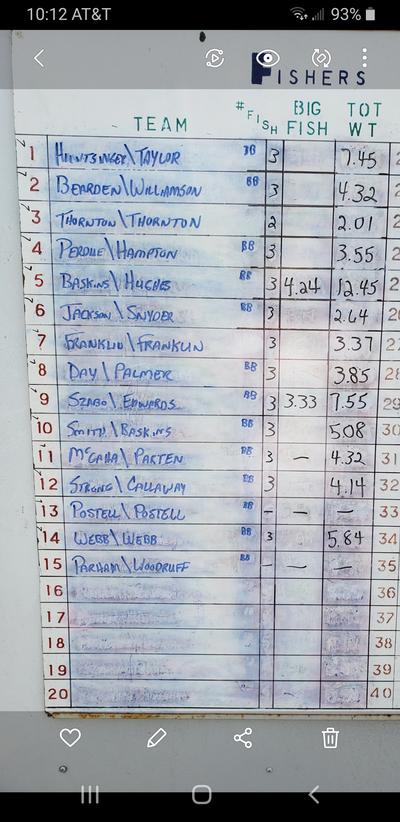 10:12 AT&T 93%
FISHERS
TEAM #FISH BIG FISH TOT WT
1 HUNTSINGER\TAYLOR BB 3 7.45
2 BEARDEN\WILLIAMSON BB 3 4.32
3 THORNTON\THORNTON 2 2.01
4 PERDUE\HAMPTON BB 3 3.55
5 BASKINS\HUGHES BB 3 4.24 12.45
6 JACKSON\SNYDER BB 3 2.64
7 FRANKLIN\FRANKLIN 3 3.37
8 DAY\PALMER BB 3 3.85 28
9 SZABO\EDWARDS BB 3 3.33 7.55 29
10 SMITH\BASKINS BB 3 5.08 30
11 McCAHA\PARTEN BB 3 — 4.32 31
12 STRONG\CALLAWAY BB 3 4.14 32
13 POSTELL\POSTELL BB - — — 33
14 WEBB\WEBB BB 3 5.84 34
15 PARHAM\WOODRUFF BB - — — 35
16 36
17 37
18 38
19 39
20 40